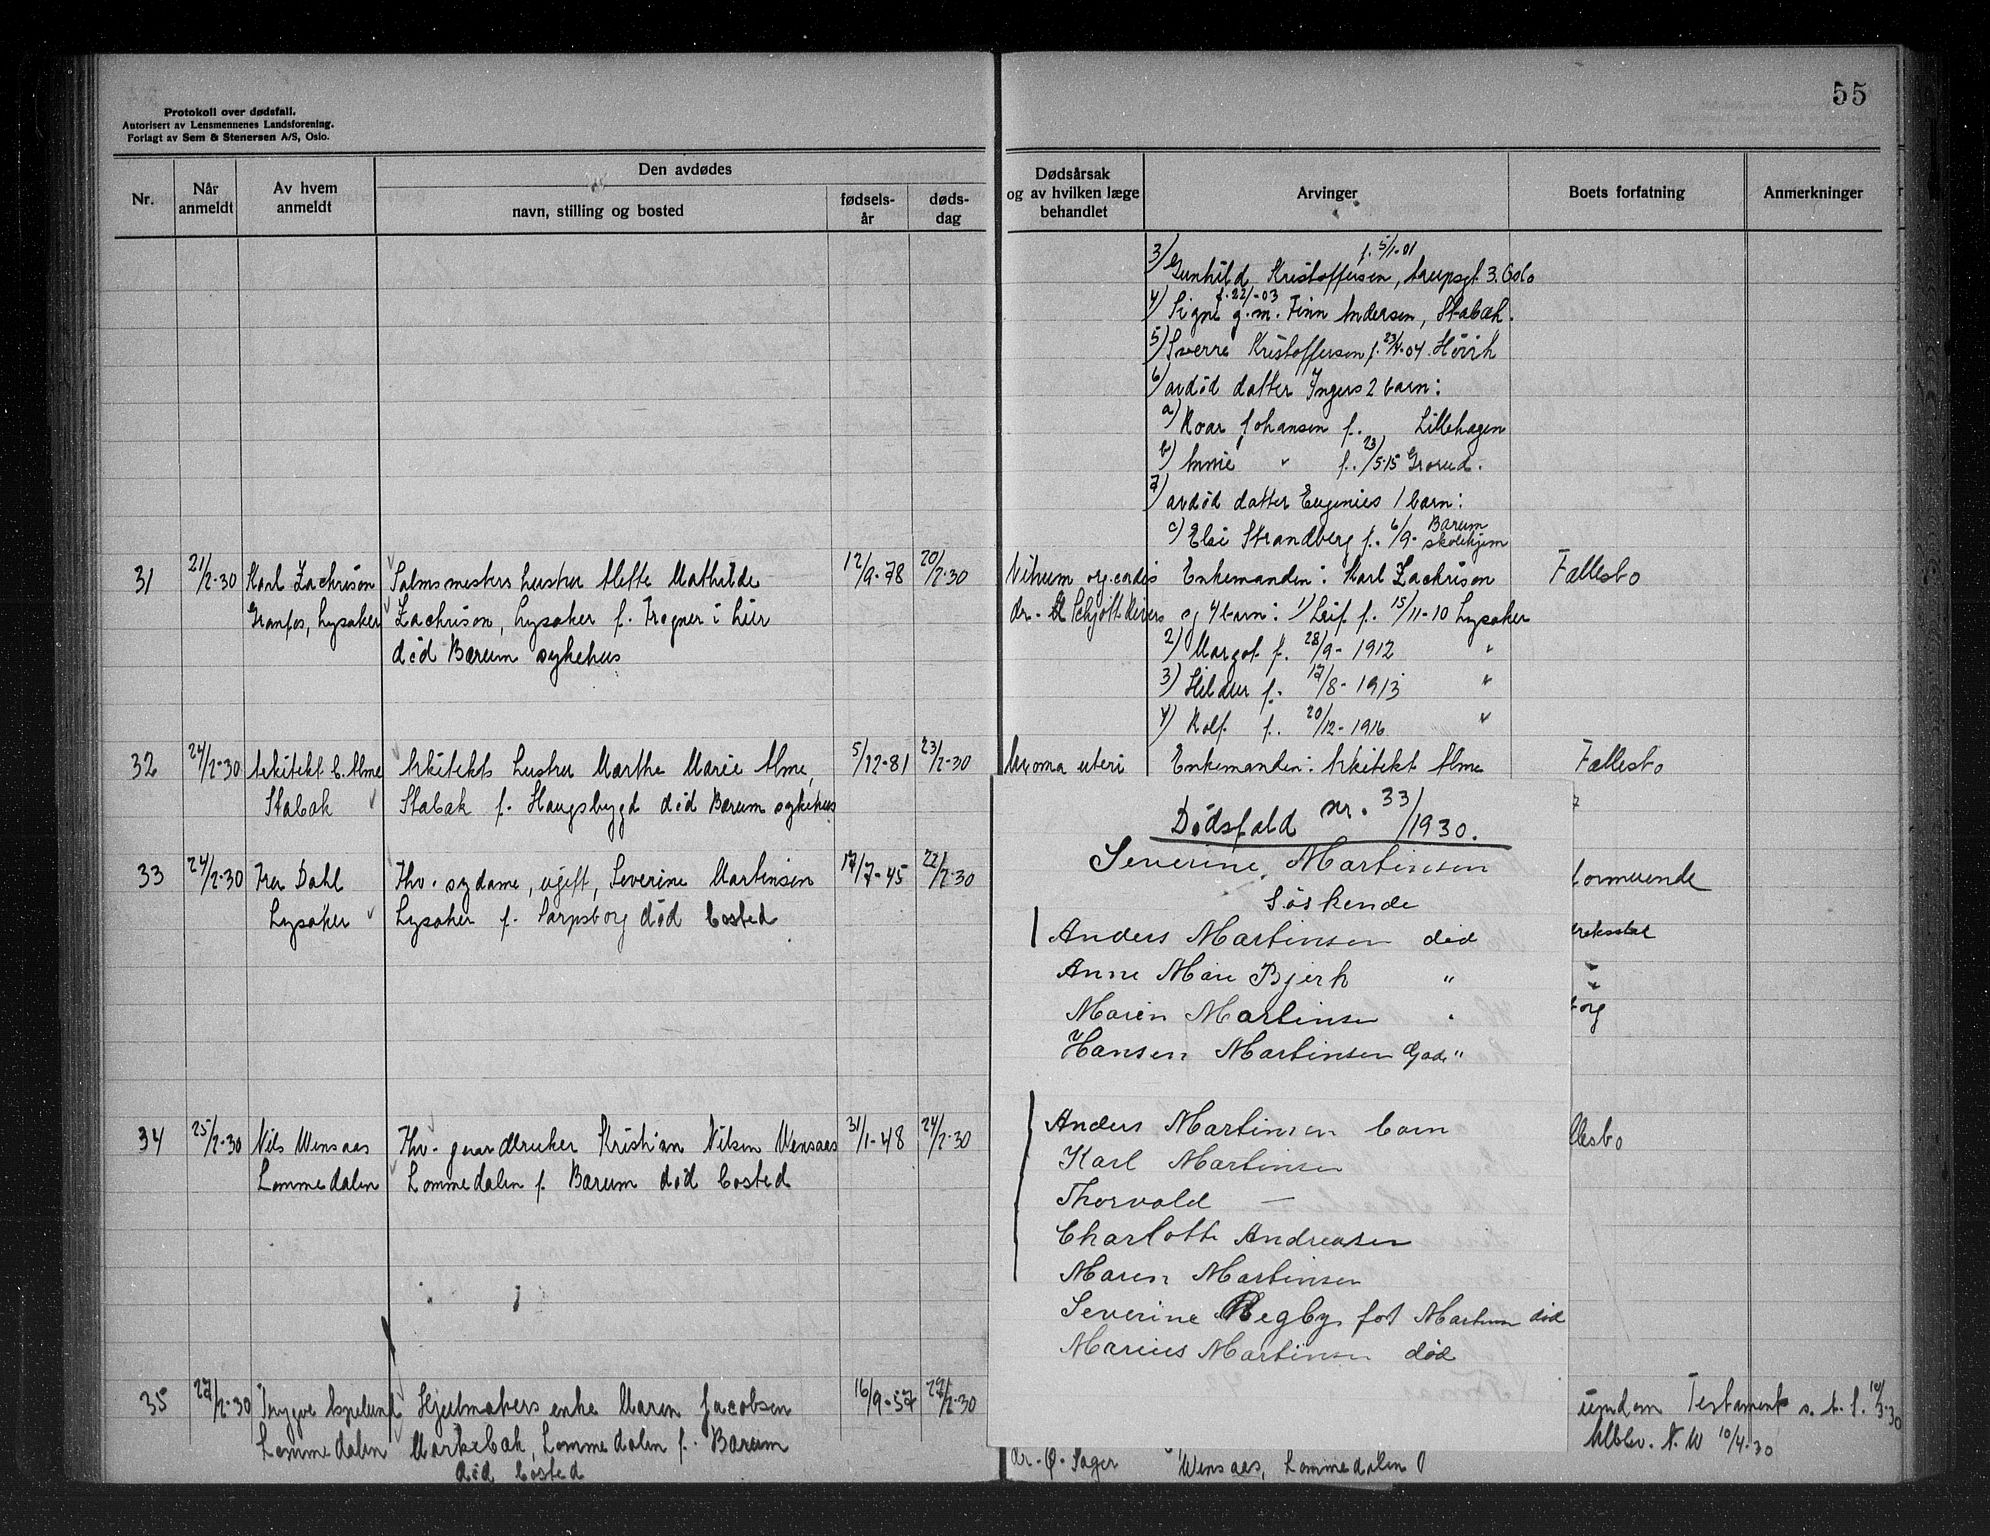 55
Protokoll over dødsfall.
Autorisert av Lensmennenes Landsforening.
Forlagt av Sem & Stenersen A/S, Oslo.
Nr.
Når anmeldt
Av hvem anmeldt
Den avdødes
navn, stilling og bosted
fødsels-år
døds-dag
Dødsårsak og av hvilken læge behandlet
Arvinger
Boets forfatning
Anmerkninger
f. 5/1-01
3) Gunhild Kristoffersen, 3. Oslo
f. 22/-03
4) Signe g.m. Finn Andersen, Stabæk.
5) Sverre Kristoffersen f. 23/4-04 Høvik
6) avdød datter Ingers 2 barn:
a) Roar Johansen f. Lillehagen
b) " f. 23/5-15 Grorud.
7) avdød datter Eugenies 1 barn:
c) Elsi Strandberg f. 6/9- Bærum skolehjem
31 21/2-30 Karl Zachrison 12/9-78 20/2-30
Granfos, Lysaker
Salmsmesters hustru Mathilde
Zachrison, Lysaker f. Trogner i
død Bærum sykehus
Vitium org. cordis
dr. Schjøtt
Enkemanden: Karl Zachrison
og 4 barn: 1) Leif f. 15/11-10 Lysaker
2) Margot f. 28/9-1912 "
3) Hildur f. 17/8-1913 "
4) Rolf f. 20/12-1916 "
Fællesbo
32 24/2-30 Arkitekt C. Alme Arkitekts hustru Marthe Marie Alme, 5/12-81 23/2-30
Stabæk Stabæk f. Haugsbygd død Bærum sykehus
Myoma uteri Enkemanden: Arkitekt Alme Fællesbo
33 24/2-30 Fru Dahl Fhv. sydame, ugift, Severine Martinsen 17/7-45 22/2-30
Lysaker Lysaker f. Sarpsborg død bosted
formuende
34 25/2-30 Nils Wensaas Fhv. gaardbruker Kristian Nilsen Wensaas 31/1-48 24/2-30
Lommedalen Lommedalen f. Bærum død bosted
llesbo
35 27/2-30 Trygve Hjulmakers enke Maren Jacobsen 16/9-57
Lommedalen Markebæk, Lommedalen f. Bærum
død bosted
dr. Ø. Sager Wensaas, Lommedalen
Testament s. d. f. 10/3-30
N. W 10/4-30
Dødsfald nr. 33/1930.
Severine Martinsen
Søskende
Anders Martinsen død
Anne Marie Bjerk "
Maren Martinsen "
Hansen Martinsen "
Anders Martinsen barn
Karl Martinsen
Thorvald —
Charlotte Andreasen
Maren Martinsen
Severine Regby født Martinsen død
Marius Martinsen død